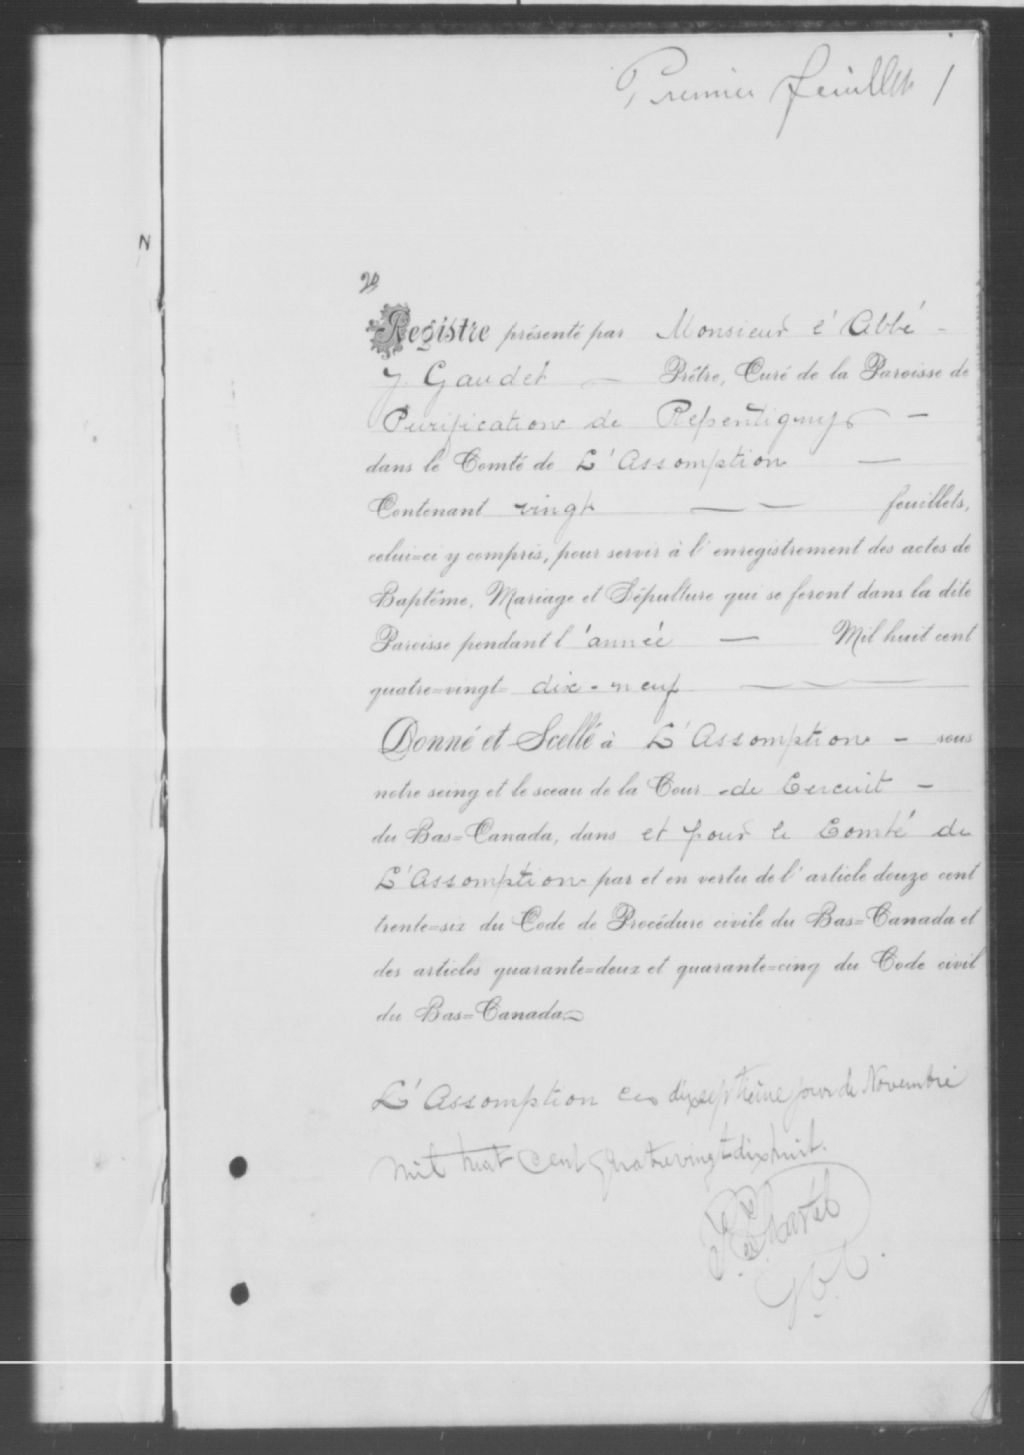 Premier feuillet 1
N
Registre présenté par Monsieur l'Abbé -
J. Gaudet — Prêtre, Curé de la Paroisse de
Purification de Repentigny —
dans le Comté de L'Assomption —
Contenant vingt — — feuillets,
celui=ci y compris, pour servir à l'enregistrement des actes de
Baptême, Mariage et Sépulture qui se feront dans la dite
Paroisse pendant l'année — Mil huit cent
quatre=vingt= dix-neuf —
Donné et Scellé à L'Assomption - sous
notre seing et le sceau de la Cour de Circuit -
du Bas=Canada, dans et pour le Comté de
L'Assomption par et en vertu de l'article douze cent
trente=six du Code de Procédure civile du Bas=Canada et
des articles quarante=deux et quarante=cinq du Code civil
du Bas=Canada —
L'Assomption ce dixseptième jour de Novembre
mil huit cent quatrevingt dixhuit.